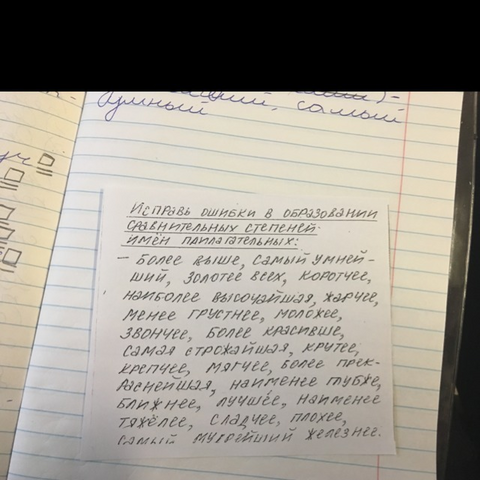 умный самый
уч
Исправь ошибки в образовании
сравнительных степеней
имён прилагательных:
– Более выше, самый умней-
ший, золотее всех, коротчее,
наиболее высочайшая, жарчее,
менее грустнее, моложее,
звончее, более красивше,
самая строжайшая, крутее,
крепчее, мягчее, более прек-
раснейшая, наименее глубже,
ближнее, лучшее, наименее
тяжелее, сладчее, плохее,
самый мудрейший железнее.